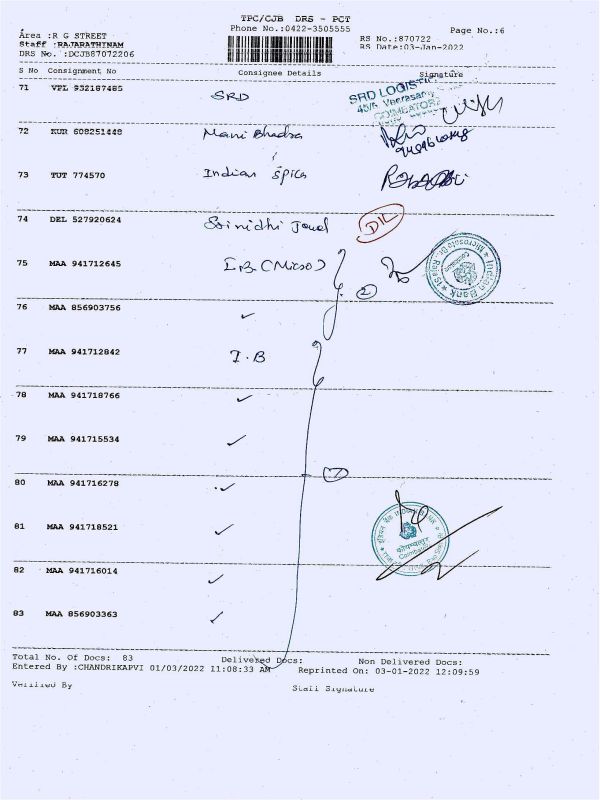 TPC/CJB DRS - PCT
Phone No.:0422-3505555
Page No.:6
Area :R G STREET
RS No.:870722
Staff :RAJARATHINAM
RS Date:03-Jan-2022
DRS No. :DCJB87072206
S No Consignment No Consignee Details Signature
71 VPL 932187485 SRD
SRD LOGISTI
45/6 Veerasamy
COIMBATORE
72 KUR 608251448 Mani Bhadra
73 TUT 774570 Indian Spica
74 DEL 527920624 Srinidhi Jowel DIL
75 MAA 941712645 I.B (Micro) 2
Indian Bank
76 MAA 856903756 ✓
77 MAA 941712842 I.B
78 MAA 941718766 ✓
79 MAA 941715534 ✓
80 MAA 941716278 ✓ 7
81 MAA 941718521 ✓
82 MAA 941716014 ✓
83 MAA 856903363 ✓
Total No. Of Docs: 83 Delivered Docs: Non Delivered Docs:
Entered By :CHANDRIKAPVI 01/03/2022 11:08:33 AM Reprinted On: 03-01-2022 12:09:59
Verified By Staff Signature